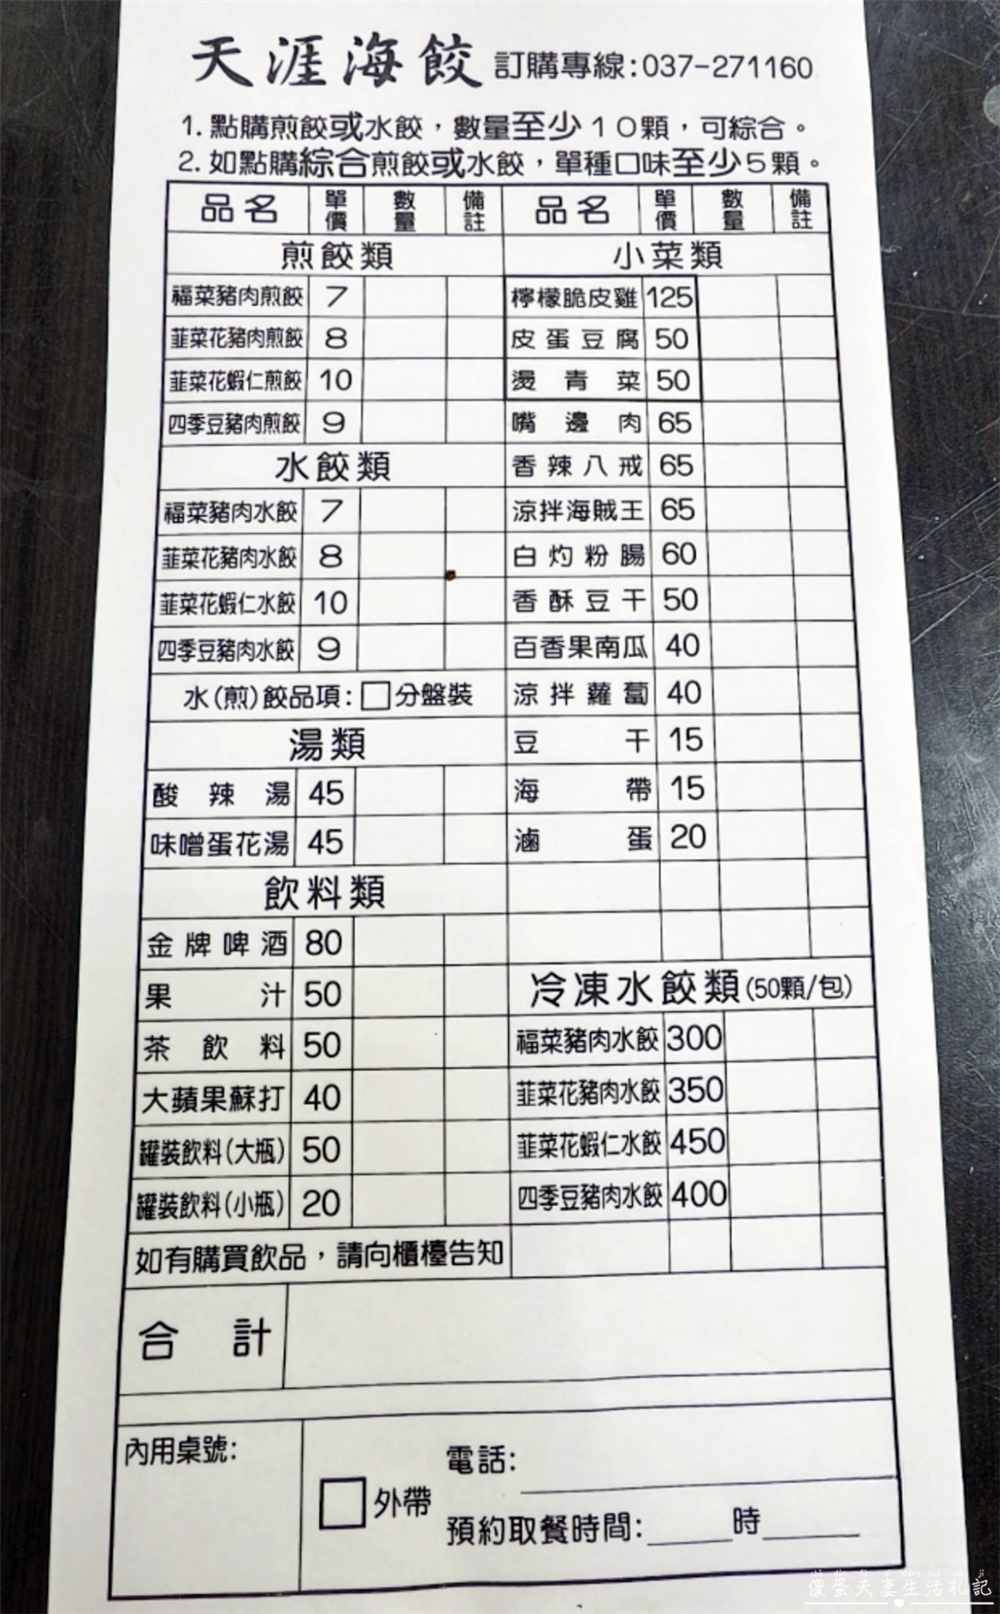 天涯海餃 訂購專線:037-271160
1. 點購煎餃或水餃，數量至少10顆，可綜合。
2. 如點購綜合煎餃或水餃，單種口味至少5顆。
品名 單價 數量 備註 品名 單價 數量 備註
煎餃類
福菜豬肉煎餃 7
韮菜花豬肉煎餃 8
韮菜花蝦仁煎餃 10
四季豆豬肉煎餃 9
水餃類
福菜豬肉水餃 7
韮菜花豬肉水餃 8
韮菜花蝦仁水餃 10
四季豆豬肉水餃 9
水(煎)餃品項:□分盤裝
湯類
酸辣湯 45
味噌蛋花湯 45
飲料類
金牌啤酒 80
果汁 50
茶飲料 50
大蘋果蘇打 40
罐裝飲料(大瓶) 50
罐裝飲料(小瓶) 20
如有購買飲品，請向櫃檯告知
小菜類
檸檬脆皮雞 125
皮蛋豆腐 50
燙青菜 50
嘴邊肉 65
香辣八戒 65
涼拌海賊王 65
白灼粉腸 60
香酥豆干 50
百香果南瓜 40
涼拌蘿蔔 40
豆干 15
海帶 15
滷蛋 20
冷凍水餃類(50顆/包)
福菜豬肉水餃 300
韮菜花豬肉水餃 350
韮菜花蝦仁水餃 450
四季豆豬肉水餃 400
合計
內用桌號:
□外帶
電話:
預約取餐時間:_____時_____
傻蛋夫妻生活札記